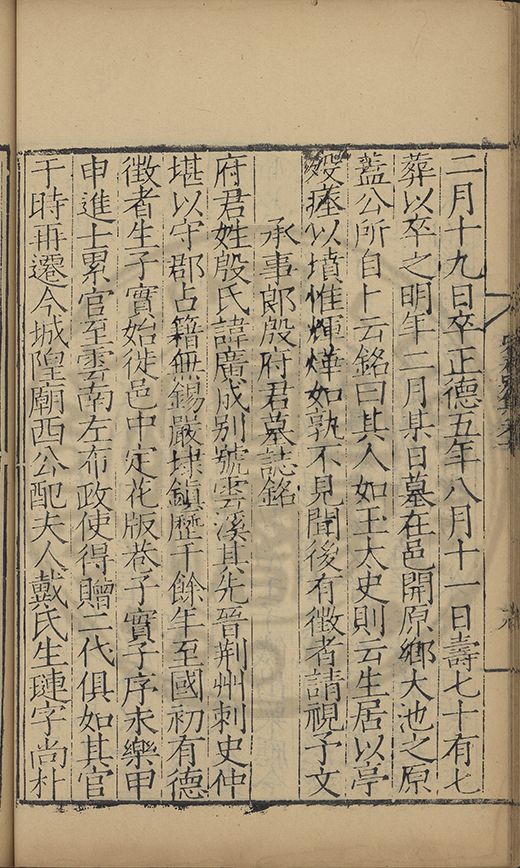 二月十九日卒正德五年八月十一日壽七十有七
葬以卒之明年二月某日墓在邑開原鄉大池之原
蓋公所自卜云銘曰其人如玉太史則云生居以亭
歿瘞以墳惟煇燁如孰不見聞後有徵者請視予文
承事郎殷府君墓誌銘
府君姓殷氏諱廣成別號雲溪其先晉荆州刺史仲
堪以守郡占籍無錫嚴埭鎮歷千餘年至國初有德
徵者生子實始徙邑中定花版巷子實子序永樂甲
申進士累官至雲南左布政使得贈二代俱如其官
于時再遷今城隍廟西公配夫人戴氏生璉字尚朴